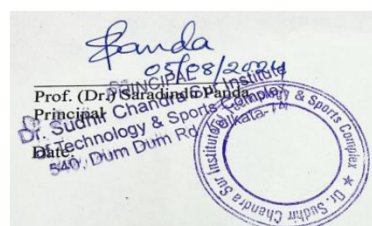 Panda
05/08/2024
Prof. (Dr.) Saradindu Panda
Principal
Date:
PRINCIPAL
Dr. Sudhir Chandra Sur Institute
of Technology & Sports Complex
540, Dum Dum Rd, Kolkata-74
Dr. Sudhir Chandra Sur Institute of Technology & Sports Complex